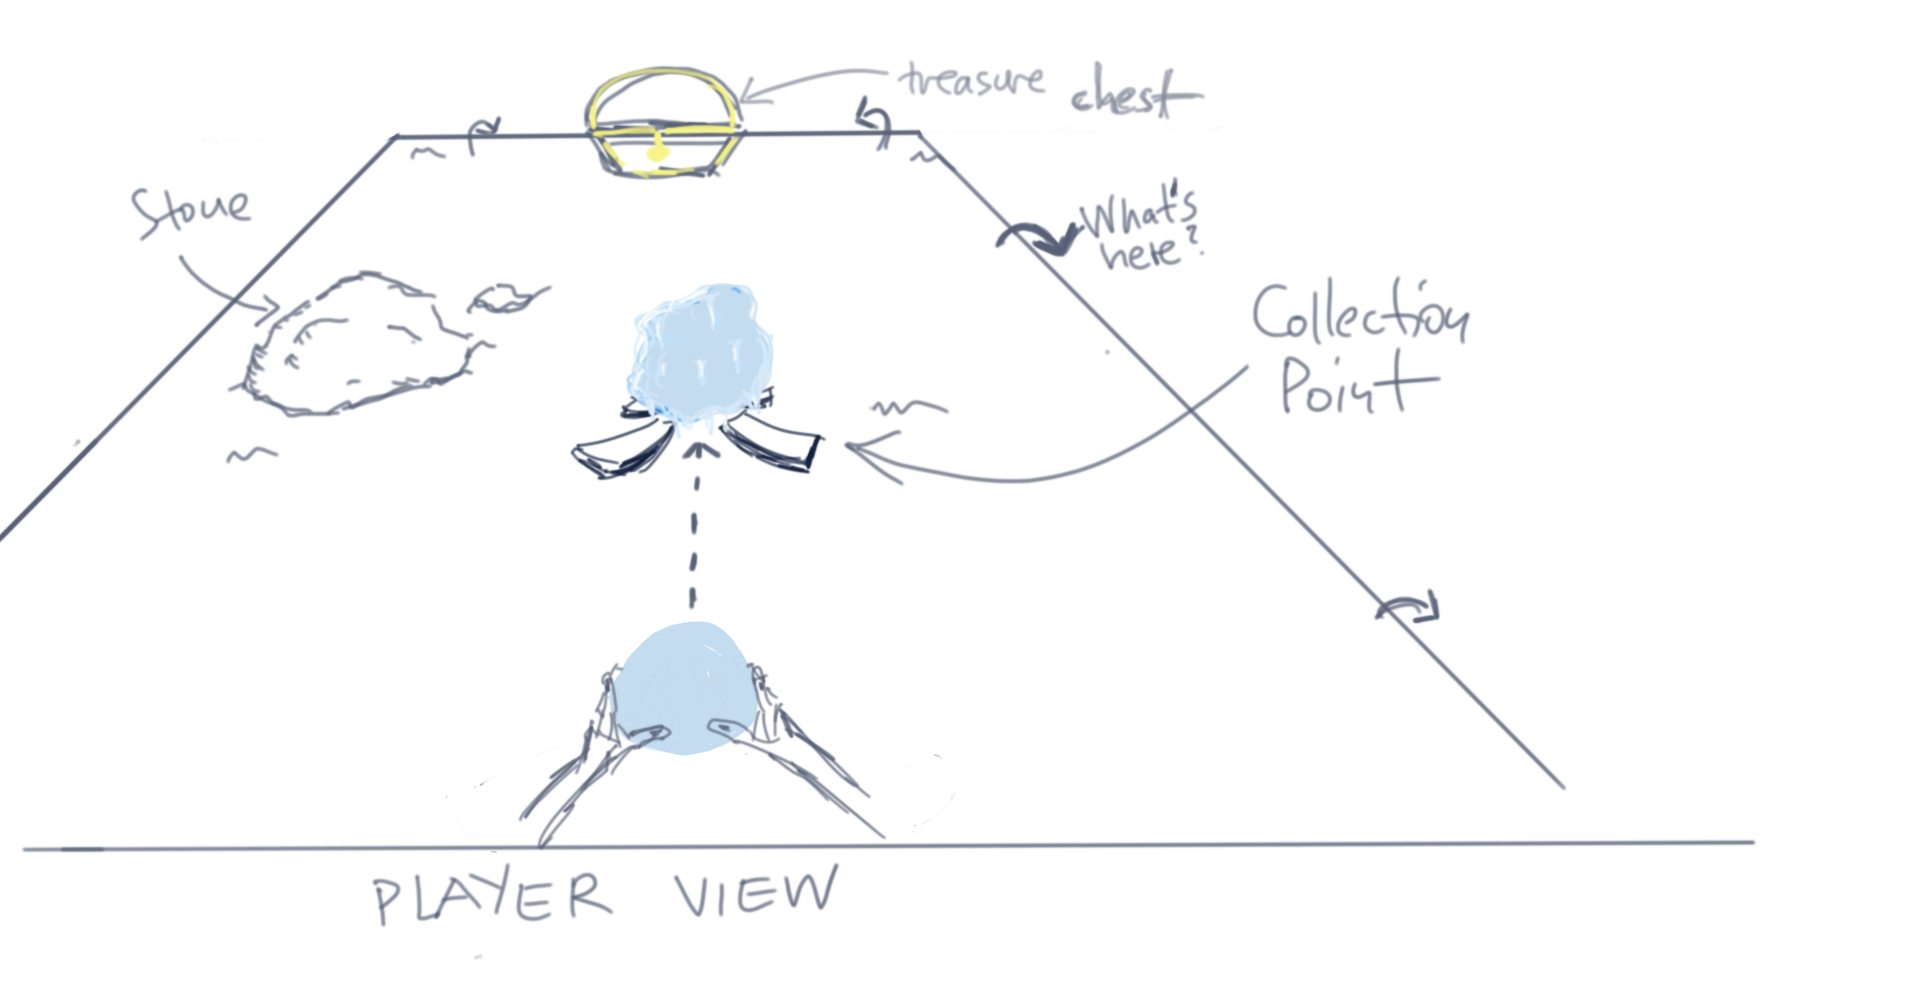 treasure chest
Stone
What's
here?
Collection
Point
PLAYER VIEW